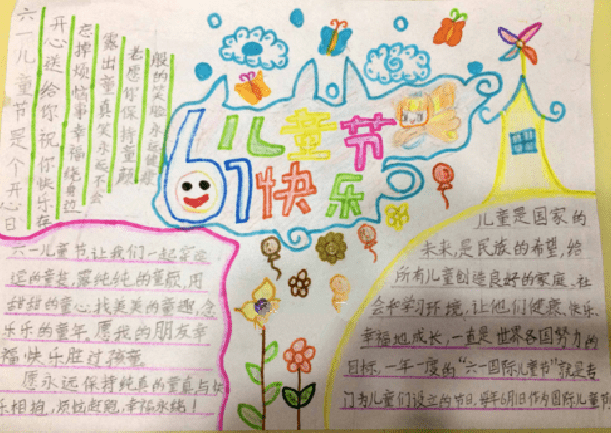 六一儿童节是个开心日
开心送给你祝你快乐在
忘掉烦恼事幸福绕身边
露出童真笑永远不会
老愿你保持童颜
般的笑脸永远健康
61儿童节
快乐
六一儿童节让我们一起穿
的童装,露纯纯的童颜,用
甜甜的童心找美美的童趣,念
乐乐的童年。愿我的朋友幸
福快乐胜过孩童。
愿永远保持纯真的童真与快
乐相拥,烦恼赶跑,幸福永拥!
儿童是国家的
未来,是民族的希望,给
所有儿童创造良好的家庭、社
会和学习环境,让他们健康、快乐、
幸福地成长,一直是世界各国努力的
目标,一年一度的“六一国际儿童节”就是专
门为儿童们设立的节日。每年6月1日作为国际儿童节